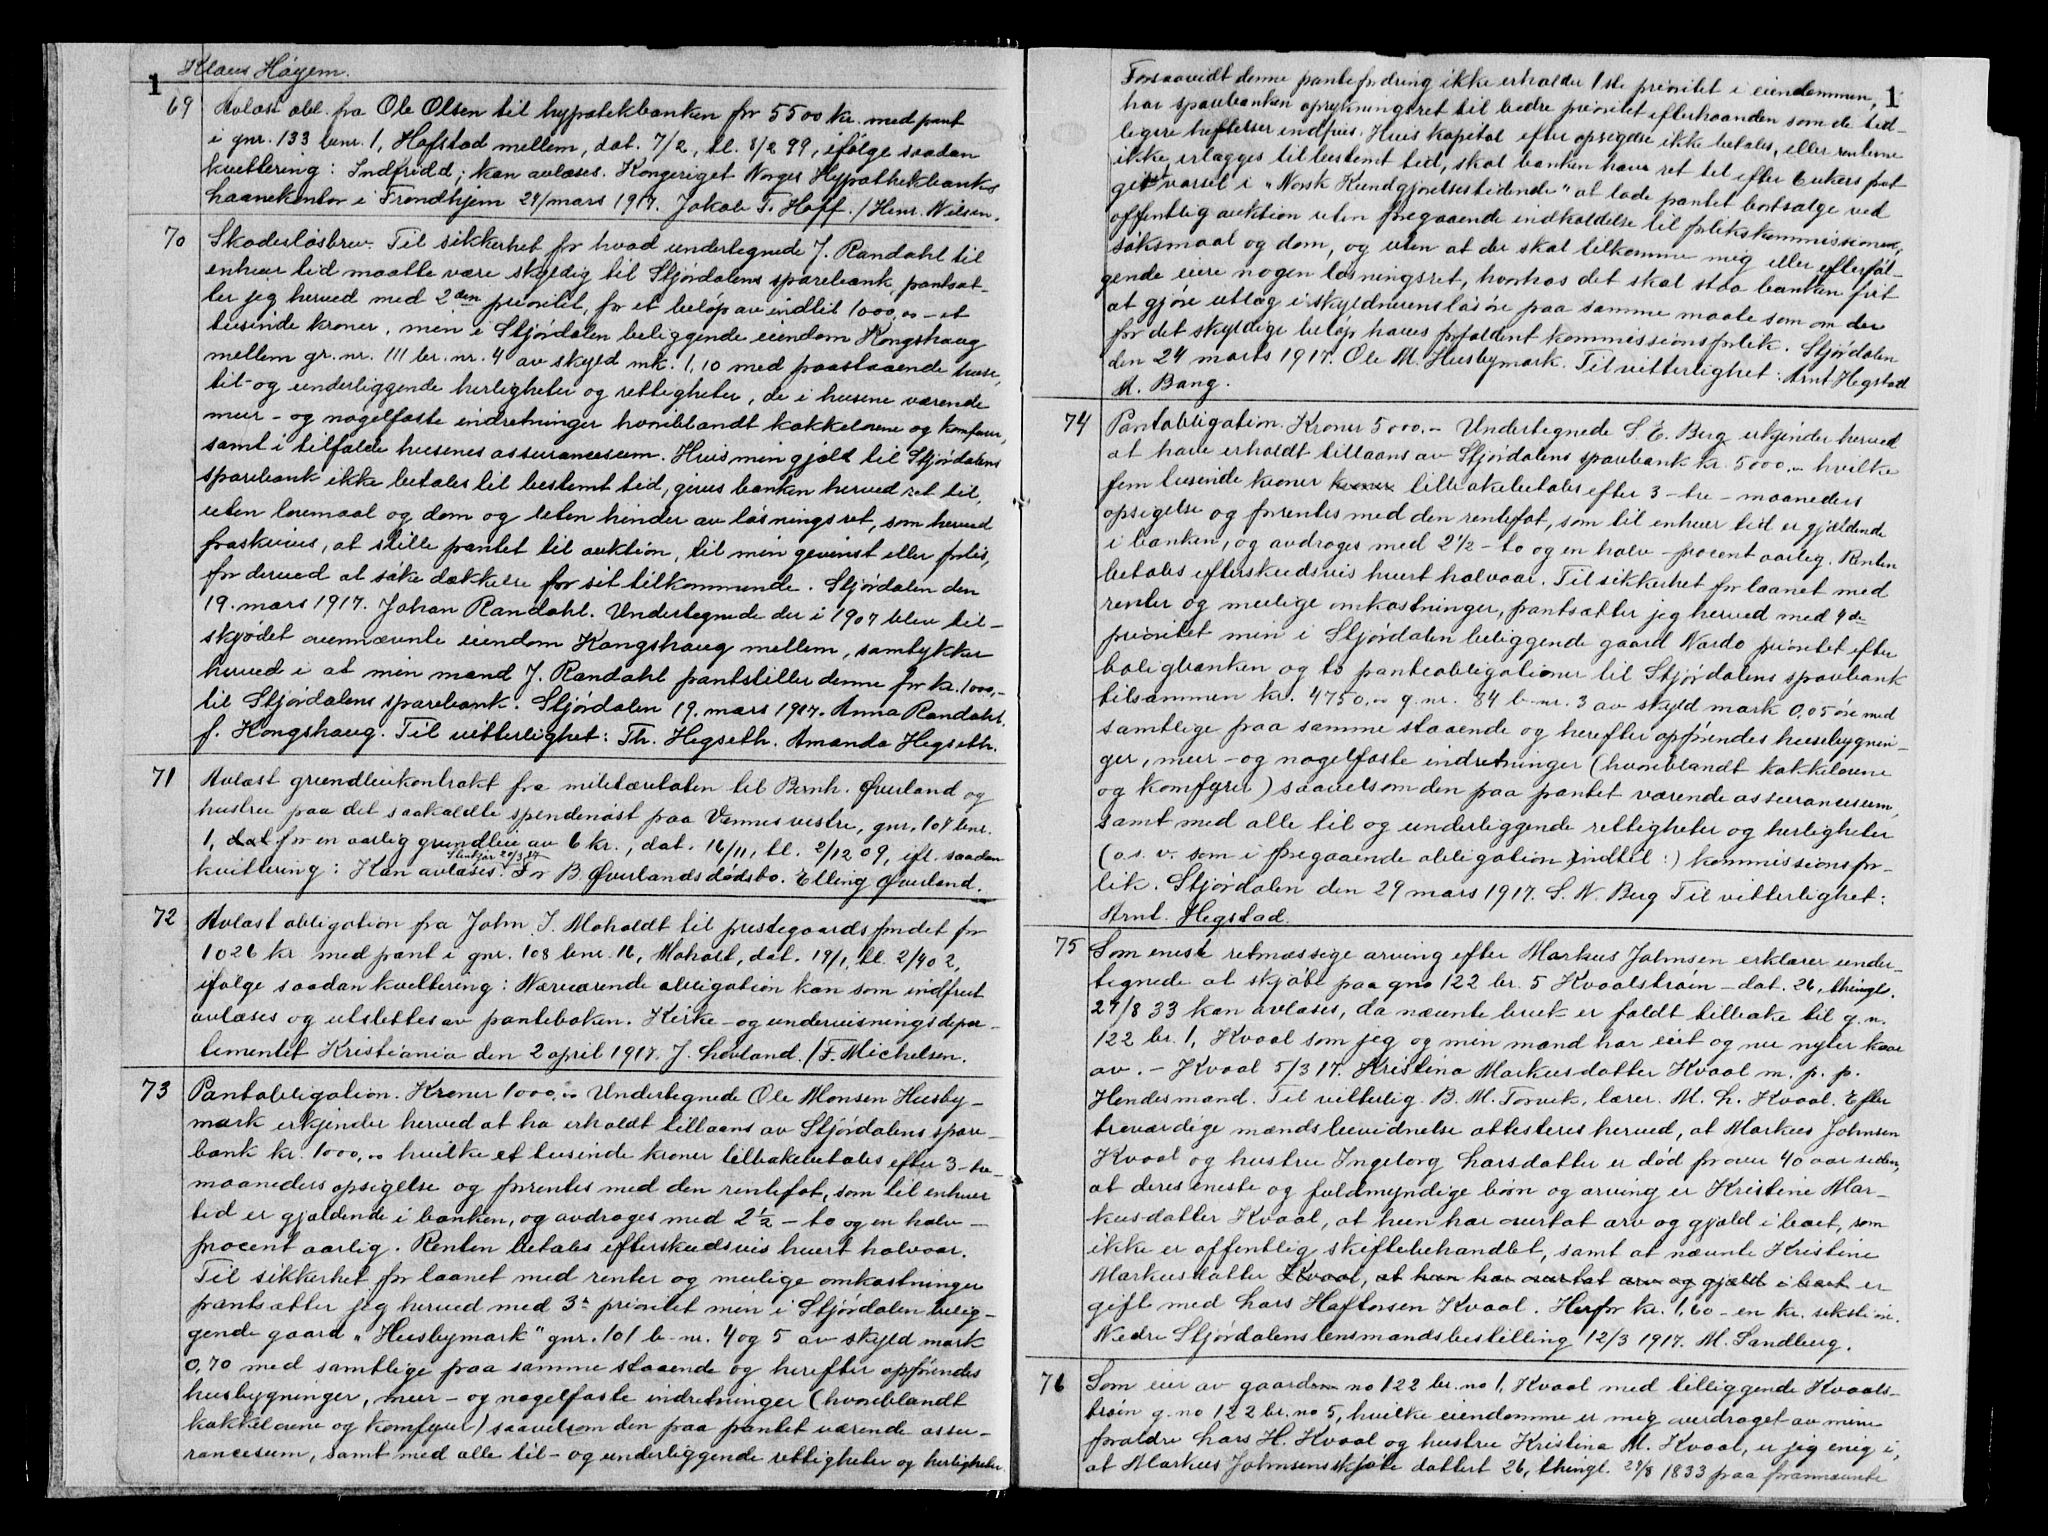 Klaus Höyem.
1
69 Avlæst obl. fra Ole Olsen til hypotekbanken for 5500 kr. med pant
i gnr. 133 bnr. 1, Hofstad mellem, dat. 7/2, tl. 8/2 99, ifölge saadan
kvittering: Indfridd; kan avlæses. Kongeriget Norges Hypothekbanks
Laanekontor i Trondhjem 24/mars 1917. Jakob T. Hoff. / Henr. Nilsen.
70 Skadeslösbrev. Til sikkerhet for hvad undertegnede J. Randahl til
enhver tid maatte være skyldig til Stjördalens sparebank, pantsæt-
ter jeg herved med 2den prioritet, for et belöp av indtil 1000,00 – et
tusinde kroner, min i Stjördalen beliggende eiendom Kongshaug
mellem gr. nr. 111 br. nr. 4 av skyld mk. 1,10 med paastaaende huse,
til- og underliggende herligheter og rettigheter, de i husene værende
mur- og nagelfaste indretninger hvoriblandt kakkelovne og komfyrer,
samt i tilfælde husenes assurancesum. Hvis min gjæld til Stjördalens
sparebank ikke betales til bestemt tid, gives banken herved ret til,
uten lovmaal og dom og uten hinder av lösningsret, som herved
fraskrives, at stille pantet til auktion, til min gevinst eller forlis,
for derved at söke dækkelse for sit tilkommende. Stjördalen den
19. mars 1917. Johan Randahl. Undertegnede der i 1907 blev til-
skjödet ovennævnte eiendom Kongshaug mellem, samtykker
herved i at min mand J. Randahl pantstiller denne for kr. 1000,-
til Stjördalens sparebank. Stjördalen 19. mars 1917. Anna Randahl,
f. Kongshaug. Til vitterlighet: Th. Hegseth. Amanda Hegseth.
71 Avlæst grundleiekontrakt fra militæretaten til Bernh. Øverland og
hustru paa det saakaldte spendenøst paa Vennes vestre, gnr. 107 bnr.
1, dat for en aarlig grundleie av 6 kr., dat. 16/11, tl. 2/12 09, ifl. saadan
kvittering: Kan avlæses. Steinkjær 20/3 17 For B. Øverlands dödsbo. Elling Øverland.
72 Avlæst obligation fra John J. Moholdt til prestegaardsfondet for
1026 kr med pant i gnr. 108 bnr. 16, Moholt, dat. 19/1, tl. 2/4 02,
ifölge saadan kvittering: Nærværende obligation kan som indfriet
avlæses og utslettes av panteboken. Kirke- og undervisningsdepar-
tementet Kristiania den 2 april 1917. J. Lovland. / F. Michelsen.
73 Pantobligation. Kroner 1000,00 Undertegnede Ole Monsen Husby-
mark erkjender herved at ha erholdt tillaans av Stjördalens spare-
bank kr. 1000,00 hvilke et tusinde kroner tilbakebetales efter 3-tre-
maaneders opsigelse og forrentes med den rentefot, som til enhver
tid er gjældende i banken, og avdrages med 2½ – to og en halv –
procent aarlig. Renten betales efterskudsvis hvert halvaar.
Til sikkerhet for laanet med renter og mulige omkostninger
pantsætter jeg herved med 3. prioritet min i Stjördalen belig-
gende gaard „Husbymark" gnr. 101 b-nr. 4 og 5 av skyld mark
0,70 med samtlige paa samme staaende og herefter opförendes
husbygninger, mur- og nagelfaste indretninger (hvoriblandt
kakkelovne og komfyrer) saavelsom den paa pantet værende assu-
rancesum, samt med alle til- og underliggende rettigheter og herligheter
1
Forsaavidt denne pantefordring ikke erholder 1ste prioritet i eiendommen,
har sparebanken oprykningsret til bedre prioritet efterhaanden som de tid-
ligere heftelser indfries. Hvis kapital efter opsigelse ikke betales, eller renterne
ikke erlægges til bestemt tid, skal banken have ret til efter 6 ukers forut
git varsel i „Norsk Kundgjörelsestidende" at lade pantet bortsælge ved
offentlig auktion uten foregaaende indkaldelse til forlikskommissionen,
söksmaal og dom, og uten at der skal tilkomme mig eller efterföl-
gende eiere nogen lösningsret, hvorhos det skal staa banken frit
at gjöre utlæg i skyldnerens lösöre paa samme maate som om der
for det skyldige belöp haves forfaldent kommissionsforlik. Stjördalen
den 24 marts 1917. Ole M. Husbymark. Til vitterlighet: Arnt Hegstad
A. Bang.
74 Pantobligation. Kroner 5000.– Undertegnede S. E. Berg erkjender herved
at have erholdt tillaans av Stjördalens sparebank kr. 5000,00 hvilke
fem tusinde kroner kroner tilbakebetales efter 3-tre-maaneders
opsigelse og forrentes med den rentefot, som til enhver tid er gjældende
i banken, og avdrages med 2½ – to og en halv – procent aarlig. Renten
betales efterskudsvis hvert halvaar. Til sikkerhet for laanet med
renter og mulige omkostninger, pantsætter jeg herved med 4de
prioritet min i Stjördalen beliggende gaard Nardo prioritet efter
boligbanken og to panteobligationer til Stjördalens sparebank
tilsammen kr. 4750,00 g. nr. 84 b-nr. 3 av skyld mark 0,05 öre med
samtlige paa samme staaende og herefter opförendes husebygnin-
ger, mur- og nagelfaste indretninger (hvoriblandt kakkelovne
og komfyrer) saavelsom den paa pantet værende assurancesum,
samt med alle til og underliggende rettigheter og herligheter
(o. s. v. som i foregaaende obligation indtil:) kommissionsfor-
lik. Stjördalen den 29 mars 1917. S. N. Berg Til vitterlighet:
Arnt. Hegstad.
75 Som eneste retmæssige arving efter Markus Johnsen erklærer under-
tegnede at skjöte paa gno 122 br. 5 Kvaalströin – dat. 26, thingl.
27/8 33 kan avlæses, da nævnte bruk er faldt tilbake til g. n.
122 br. 1, Kvaal som jeg og min mand har eiet og nu nyter kaar
av. – Kvaal 5/3 17. Kristina Markusdatter Kvaal m. p. p.
Hendes mand. Til vitterlig. B. M. Torvik, lærer. M. L. Kvaal. Efter
troværdige mænds bevidnelse attesteres herved, at Markus Johnsen
Kvaal og hustru Ingeborg Larsdatter er död for over 40 aar siden,
at deres eneste og fuldmyndige barn og arving er Kristine Mar-
kusdatter Kvaal, at hun har overtat arv og gjæld i boet, som
ikke er offentlig skiftebehandlet, samt at nævnte Kristine
Markusdatter Kvaal, at hun har overtat arv og gjæld i boet er
gift med Lars Haftorsen Kvaal. Herfor kr. 1,60 – en kr. seksti öre.
Nedre Stjördalens lensmandsbestilling 12/3 1917. M. Sandberg.
76 Som eier av gaarden no 122 br. no 1, Kvaal med tilliggende Kvaal-
tröin g. no 122 br. no 5, hvilke eiendomme er mig overdraget av mine
forældre Lars H. Kvaal og hustru Kristina M. Kvaal, er jeg enig i,
at Markus Johnsens skjöte datert 26, thingl. 27/8 1833 paa forannævnte